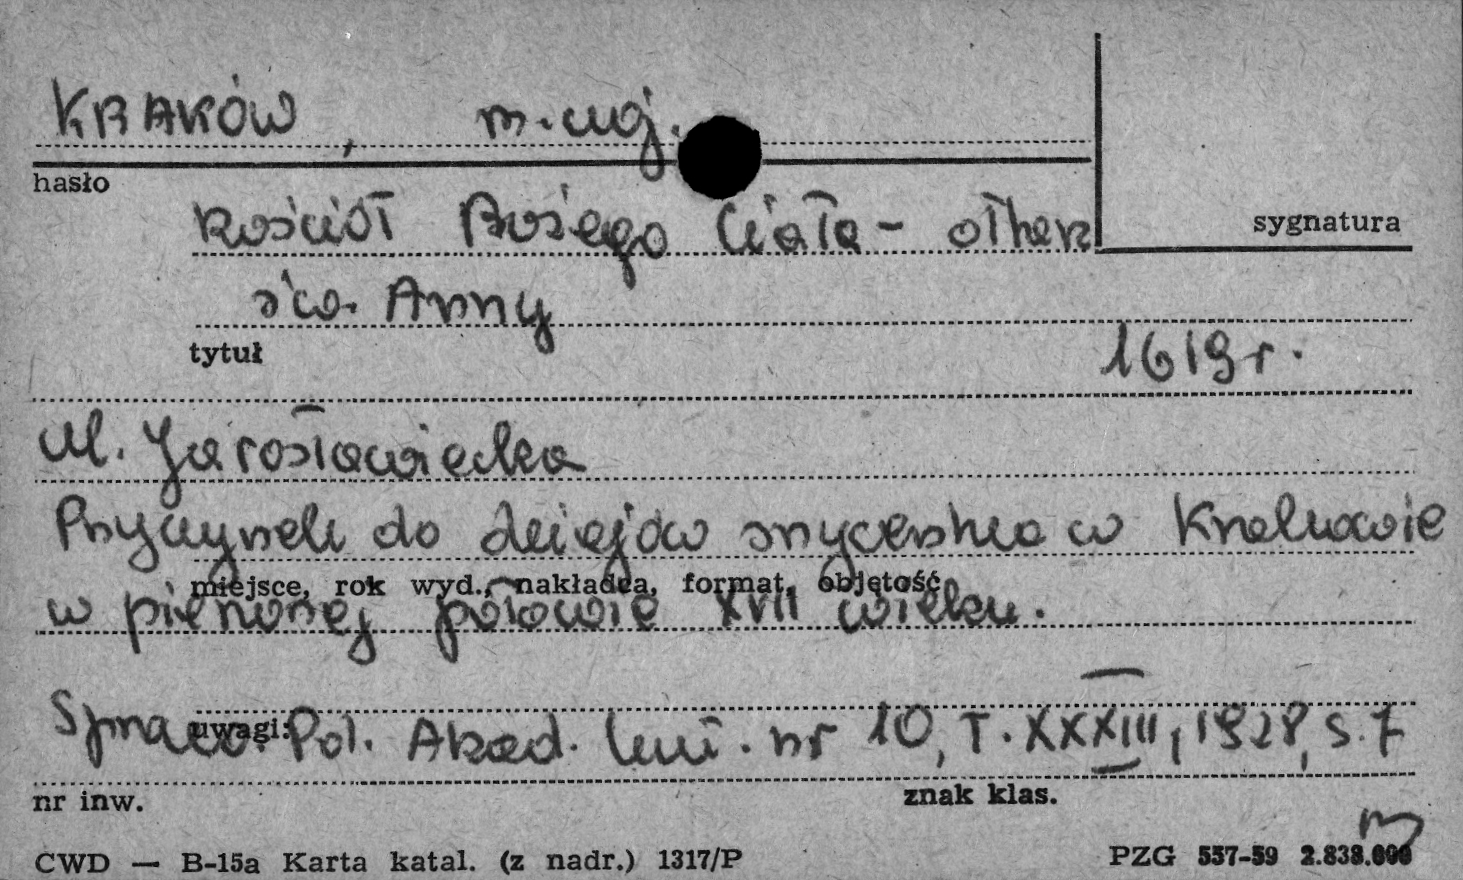 KRAKÓW, m. woj.
hasło
Kościół Bożego Ciała - ołtarz
sygnatura
św. Anny
tytuł
1619 r.
M. Jarosławiecka
Przyczynek do dziejów snycerstwa w Krakowie
miejsce, rok wyd., nakładca, format, objętość
w pierwszej połowie XVII wieku.
uwagi:
Spraw. Pol. Akad. Um. nr 10, T. XXXIII, 1928, s. 7
nr inw.
znak klas.
CWD — B-15a Karta katal. (z nadr.) 1317/P
PZG 557-59 2.838.000